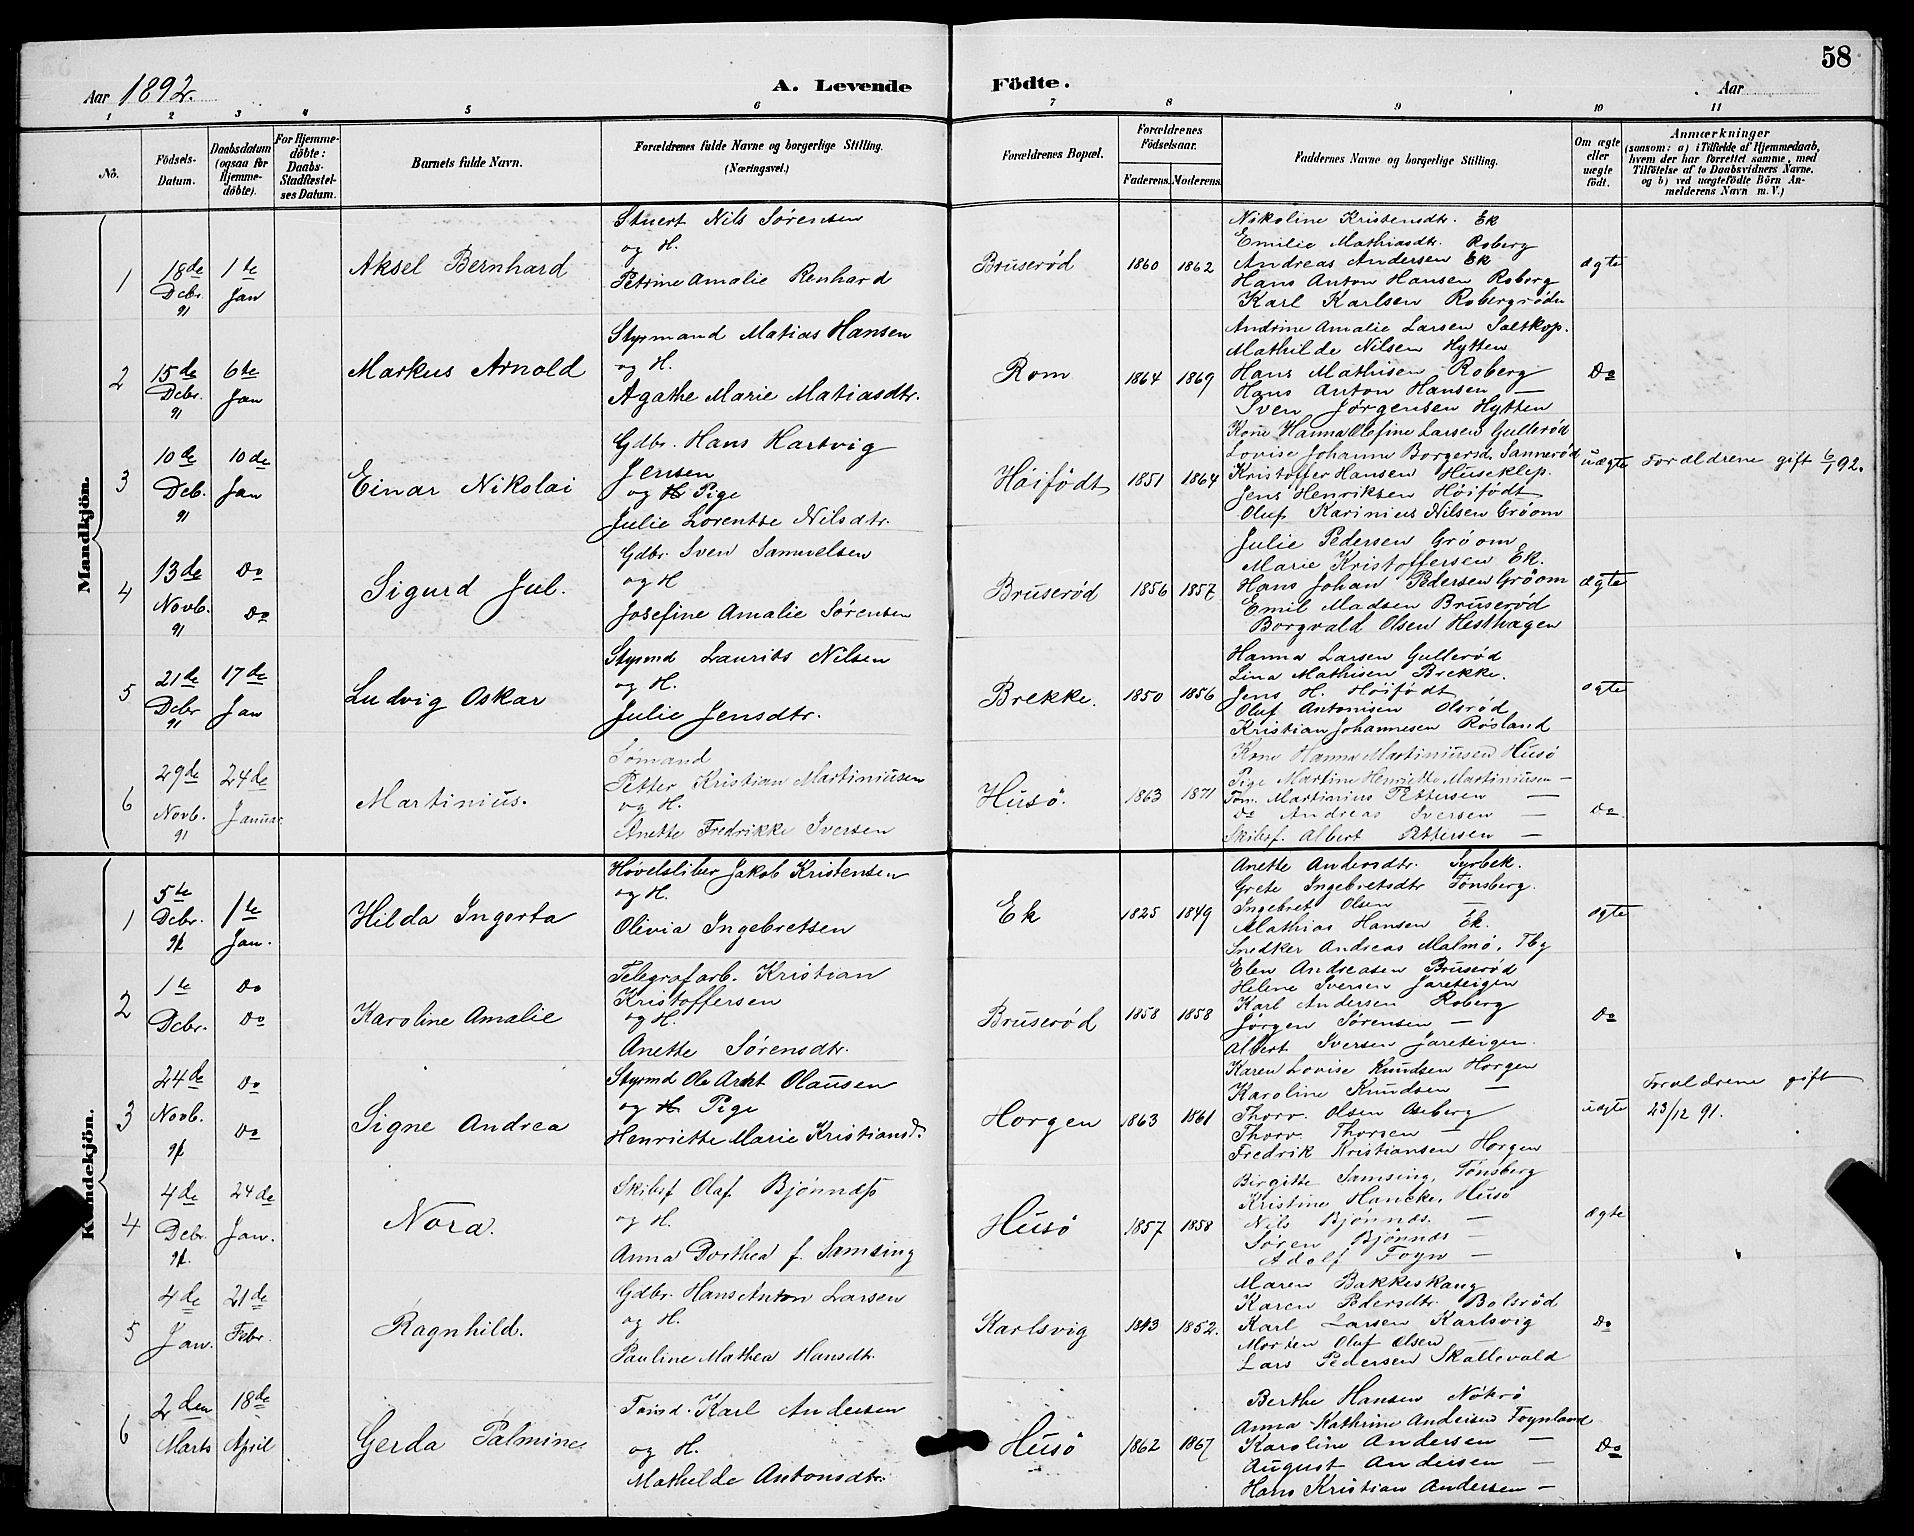 58
Aar 1892. A. Levende Födte. Aar
1 2 3 4 5 6 7 8 9 10 11
No.
Födsels-Datum.
Daabsdatum (ogsaa for Hjemmedöbte).
For Hjemmedöbte: Daabs-Stadfæstelses Datum.
Barnets fulde Navn.
Forældrenes fulde Navne og borgerlige Stilling. (Næringsvei.)
Forældrenes Bopæl.
Forældrenes Födselsaar.
Faderens. Moderens.
Faddernes Navne og borgerlige Stilling.
Om ægte eller uægte födt.
Anmærkninger
(saasom: a) i Tilfælde af Hjemmedaab, hvem der har forrettet samme, med Tilföielse af to Daabsvidners Navne. og b) ved uægtefödte Börn Anmelderens Navn m. V.)
Mandkjön.
1
18de Debr. 91
1te Jan
Aksel Bernhard
Stuert Nils Sörensen
og H.
Petrine Amalie Renhard
Bruseröd
1860 1862
Nikoline Kristensdtr. Ek
Emilie Mathiasdtr. Roberg
Andreas Andersen Ek
Hans Anton Hansen Roberg
Karl Karlsen Robergrödn
ægte
2
15de Debr. 91
6te Jan
Markus Arnold
Styrmand Matias Hansen
og H.
Agathe Marie Matiasdtr.
Rom
1864 1869
Andrine Amalie Larsen Saltkop.
Mathilde Nilsen Hytten
Hans Mathisen Roberg
Hans Anton Hansen —
Sven Jörgensen Hytten
Do
3
10de Deb. 91
10de Jan
Einar Nikolai
Gdbr. Hans Hartvig
Jensen
og H Pige
Julie Lorentse Nilsdtr.
Höifödt
1851 1864
Kone Hanna Olefine Larsen Gulleröd
Lovise Johanne Borgersd. Sanneröd
Kristoffer Hansen Huseklep.
Jens Henriksen Höifödt
Oluf Karinius Nilsen Gröom
uægte
Forældrene gift 6/1 92.
4
13de Novb. 91
Do Do
Sigurd Jul.
Gdbr. Sven Samuelsen
og H
Josefine Amalie Sörensen
Bruseröd
1856 1857
Julie Pedersen Gröom
Marie Kristoffersen Ek.
Hans Johan Pedersen Gröom
Emil Madsen Bruseröd
Borgvald Olsen Hesthagen
ægte
5
21de Debr. 91
17de Jan
Ludvig Oskar
Styrmd Laurits Nilsen
og H.
Julie Jensdtr.
Brekke.
1850 1856
Hanna Larsen Gulleröd
Lina Mathisen Brekke.
Jens H. Höifödt
Oluf Antonisen Olsröd
Kristian Johannesen Rösland
ægte
6
29de Novb. 91
24de Januar
Martinius.
Sömand
Petter Kristian Martiniusen
og H.
Anette Fredrikke Iversen
Husö.
1863 1871
Kone Hanna Martiniusen Husö
Pige Martine Henriette Martiniusen —
Töm. Martinius Pettersen —
Do Andreas Iversen —
Skibsf. Albert Pettersen —
Do
Kvindekjön.
1
5te Debr. 91
1te Jan.
Hilda Ingerta
Høvelsliber Jakob Kristensen
og H.
Olivia Ingebretsen
Ek
1825 1849
Anette Andersdtr. Syrbek.
Grete Ingebretsdtr Tönsberg.
Ingebret Olsen —
Mathias Hansen Ek.
Snedker Andreas Malmö, Tbg
ægte
2
1te Debr.
Do Do
Karoline Amalie
Telegrafarb. Kristian
Kristoffersen
og H.
Anette Sörensdtr.
Bruseröd
1858 1858
Elen Andreasen Bruseröd
Helene Iversen Jareteigen
Karl Andersen Roberg
Jörgen Sörensen —
Albert Iversen Jareteigen.
Do
3
24de Novb. 91
Do Do
Signe Andrea
Styrmd Ole Arnt Olausen
og H. Pige
Henriette Marie Kristiansd.
Horgen
1863 1861
Karen Lovise Knudsen Horgen
Karoline Knudsen —
Thorv. Olsen Oseberg
Thorv. Thorsen —
Fredrik Kristiansen Horgen
uægte
Forældrene gift
23/12 91.
4
4de Debr. 91.
24de Jan.
Nora.
Skibsf Olaf Bjönnæs
og H.
Anna Dorthea f. Samsing
Husö
1857 1858
Birgitte Samsing, Tönsberg
Kristine Hancke, Husö
Nils Bjönnæs. —
Sören Bjönnæs —
Adolf Foyn —
ægte
5
4de Jan.
21de Febr
Ragnhild.
Gdbr. Hans Anton Larsen
og H.
Pauline Mathea Hansdtr.
Karlsvig
1843 1852.
Maren Bakkeskaug
Karen Pedersdtr. Bolsröd
Karl Larsen Karlsvig
Morten Oluf Olsen —
Lars Pedersen Skallevald
Do
6
2den Marts
18de April
Gerda Palmine
Tömd. Karl Andersen
og H.
Mathilde Antonsdtr.
Husö
1862 1867
Berthe Hansen Nökrö
Anna Kathrine Andersen Foynland
Karoline Andersen —
August Andersen —
Hans Kristian Andersen —
Do